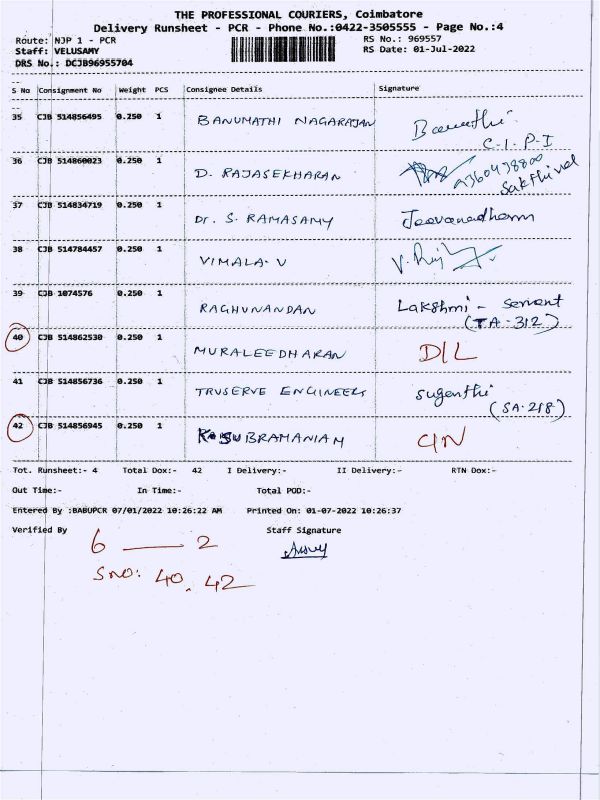 THE PROFESSIONAL COURIERS, Coimbatore
Delivery Runsheet - PCR - Phone No.:0422-3505555 - Page No.:4
Route: NJP 1 - PCR
RS No.: 969557
Staff: VELUSAMY
RS Date: 01-Jul-2022
DRS No.: DCJB96955704
S No Consignment No Weight PCS Consignee Details Signature
35 CJB 514856495 0.250 1 BANUMATHI NAGARAJAN Banuthi
C-I-P-I
36 CJB 514860023 0.250 1 D. RAJASEKHARAN 9360498800
Sakthivel
37 CJB 514834719 0.250 1 Dr. S. RAMASAMY Jeevanadham
38 CJB 514784457 0.250 1 VIMALA. V
39 CJB 1074576 0.250 1 RAGHUNANDAN Lakshmi - Servent
(TA-312)
40 CJB 514862530 0.250 1 MURALEEDHARAN D/L
41 CJB 514856736 0.250 1 TRUSERVE ENGINEERS Sugenthi
(SA-218)
42 CJB 514856945 0.250 1 SUBRAMANIAM
Tot. Runsheet:- 4 Total Dox:- 42 I Delivery:- II Delivery:- RTN Dox:-
Out Time:- In Time:- Total POD:-
Entered By :BABUPCR 07/01/2022 10:26:22 AM Printed On: 01-07-2022 10:26:37
Verified By Staff Signature
6 — 2
S no: 40, 42